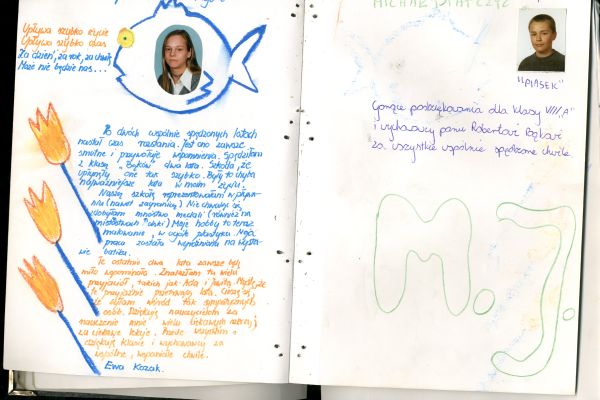 Upływa szybko życie
Upływa szybko czas
Za dzień, za rok, za chwilę
Może nie będzie nas...
Po dwóch wspólnie spędzonych latach
nastał czas rozstania. Jest ono zawsze
smutne i przywołuje wspomnienia. Spędziłam
z klasą "Byków" dwa lata. Szkoda, że
upłynęły one tak szybko. Były to chyba
najważniejsze lata w moim życiu.
Naszą szkołę reprezentowałam w pływa-
niu (nawet zagranicą) Nie chwaląc się
zdobyłam mnóstwo medali (również na
mistostwach Moje hobby to teraz
malowanie, w ogóle plastyka. Moja
praca została wyróżniona na wysta-
wie
Te ostatnie dwa lata zawsze będę
miło wspominała. Znalazłam tu wielu
przyjaciół, takich jak Ada i Myślę, że
te przyjaźnie przetrwają lata. Cieszę się
że byłam wśród tak sympatycznych
osób. Dziękuję nauczycielom za
nauczenie mnie wielu ciekawych rzeczy,
za ciekawe lekcje. Przede wszystkim
dziękuję klasie i wychowawcy za
wspólne, wspaniałe chwile.
Ewa Kozak.
MICHAŁ
"PIASEK"
Gorące podziękowania dla klasy VIII "A"
i wychowawcy panu Robertowi
za wszystkie wspólnie spędzone chwile.
M. J.